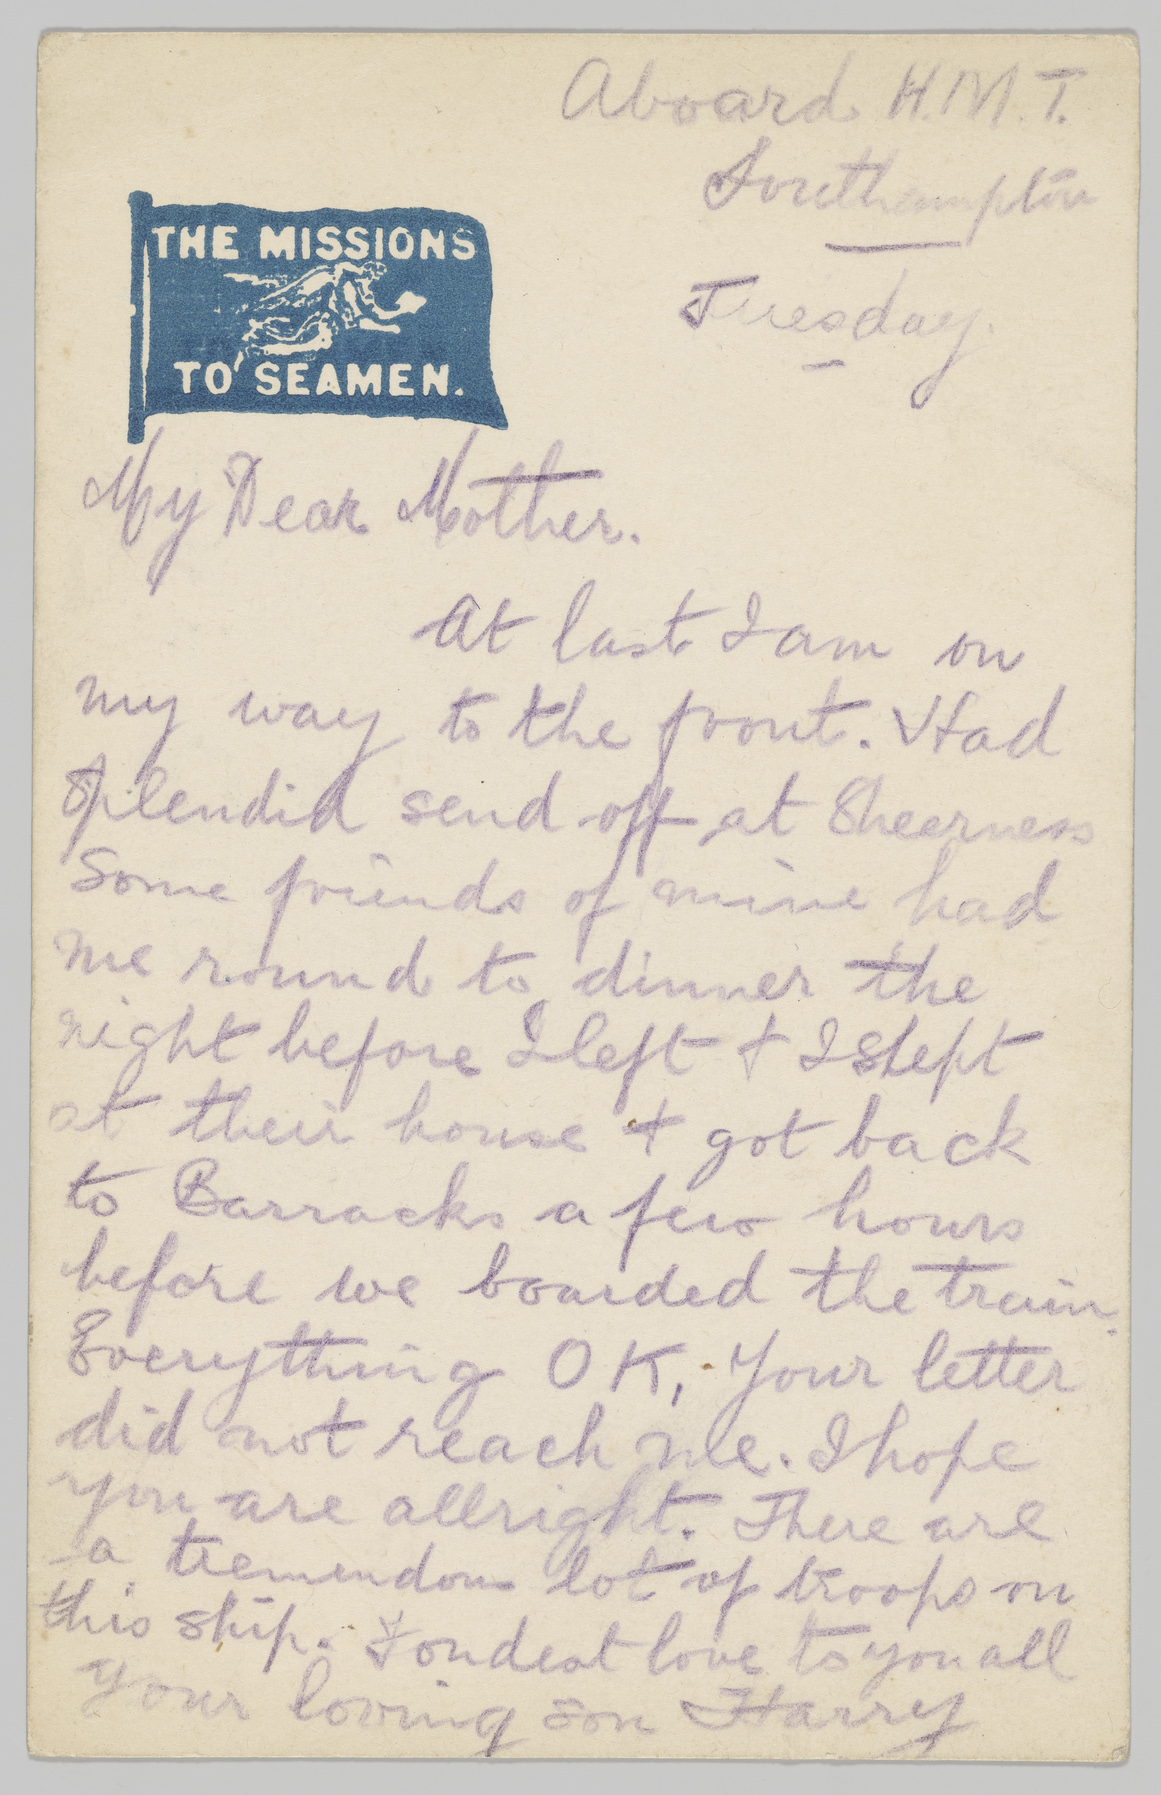 Aboard H.M.T.
Southampton
Tuesday.
THE MISSIONS
TO SEAMEN.
My Dear Mother.
At last I am on
my way to the front. Had
splendid send off at Sheerness
Some friends of mine had
me round to dinner the
night before I left & I slept
at their house & got back
to Barracks a few hours
before we boarded the train.
Everything OK, Your letter
did not reach me. I hope
you are allright. There are
a tremendous lot of troops on
this ship. Fondest love to you all
Your loving son Harry